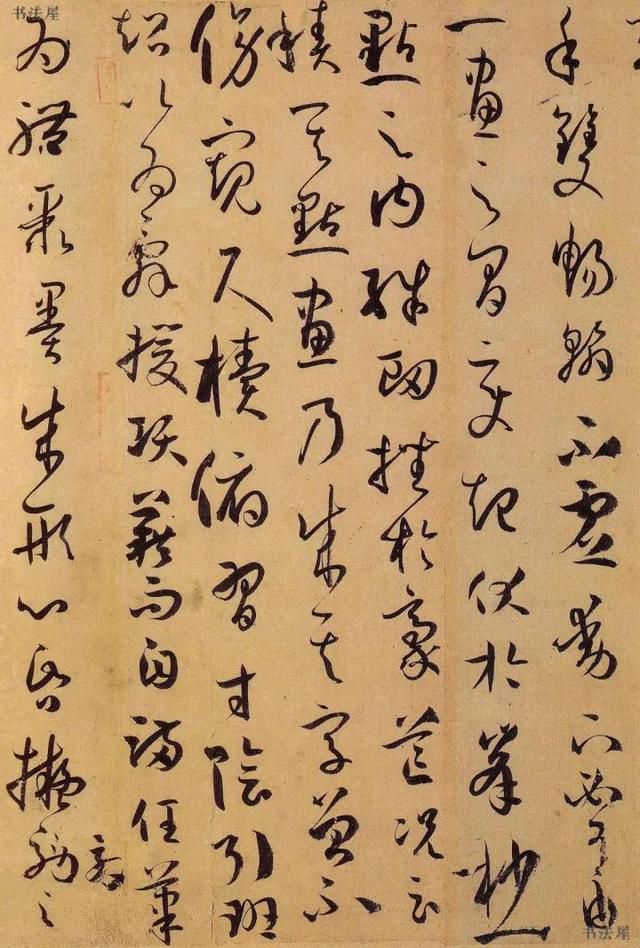 手雙暢翰不虛動下必有由
一畫之間變起伏於峯杪一
點之內殊衄挫於豪芒況云
積其點畫乃成其字曾不
傍窺尺牘俯習寸陰引班
超以為辭援項籍而自滿任筆
為體聚墨成形心昏擬效之
书法屋
书法屋